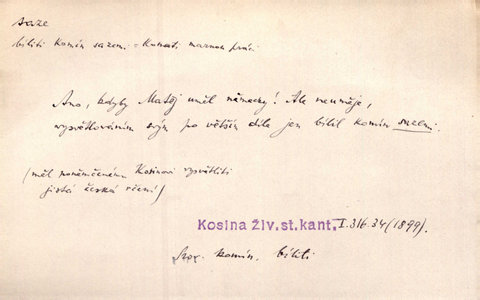 saze
bíliti komín sazemi = konati marnou práci
Ano, kdyby Matěj uměl německy! Ale neuměje,
vysvětlováním svým po větším díle jen bílil komín sazemi.
(měl poněmčenému Kosinovi vysvětliti
jistá česká rčení)
Kosina Živ.st.kant. I. 316.34 (1899).
komín, bíliti